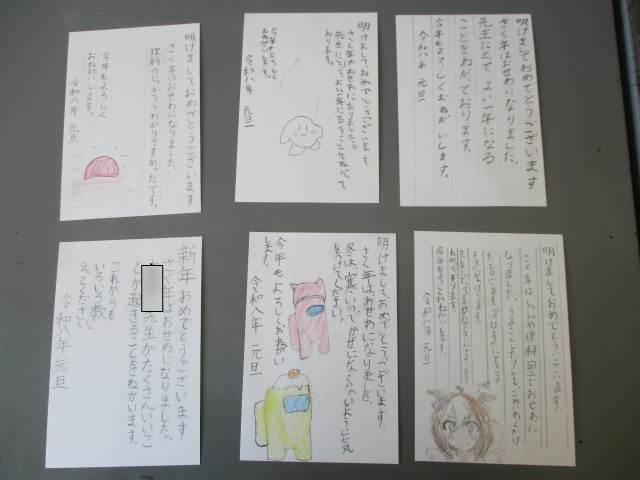 明けましておめでとうございます
さく年はおせわになりました。
理科のじっけんがわかりやすかったです。
今年もよろしく
おねがいします。
令和八年 元旦
明けましておめでとうございます
さく年はおせわになりました。
先生にとって、よい一年になることをねがって
おります。
今年もよろしく
おねがいします。
令和八年 元旦
明けましておめでとうございます
さく年はおせわになりました。
先生にとって、よい一年になる
ことをねがっております。
今年もよろしくおねがいします。
令和八年 元旦
新年おめでとうございます
さく年はおせわになりました。
先生がたくさんいいこ
とが起きることをねがいます。
これからも
いろいろ教
えてください。
令和八年 元旦
明けましておめでとうございます。
さく年はおせわになりました。
冬は、寒いのでかぜにならないように気
をつけてください。
今年もよろしくおねがい
します。
令和八年 元旦
明けましておめでとうございます。
さく年は
理科
でおせわに
なりました。
今年もよろしくおねがいします。
令和八年 元旦